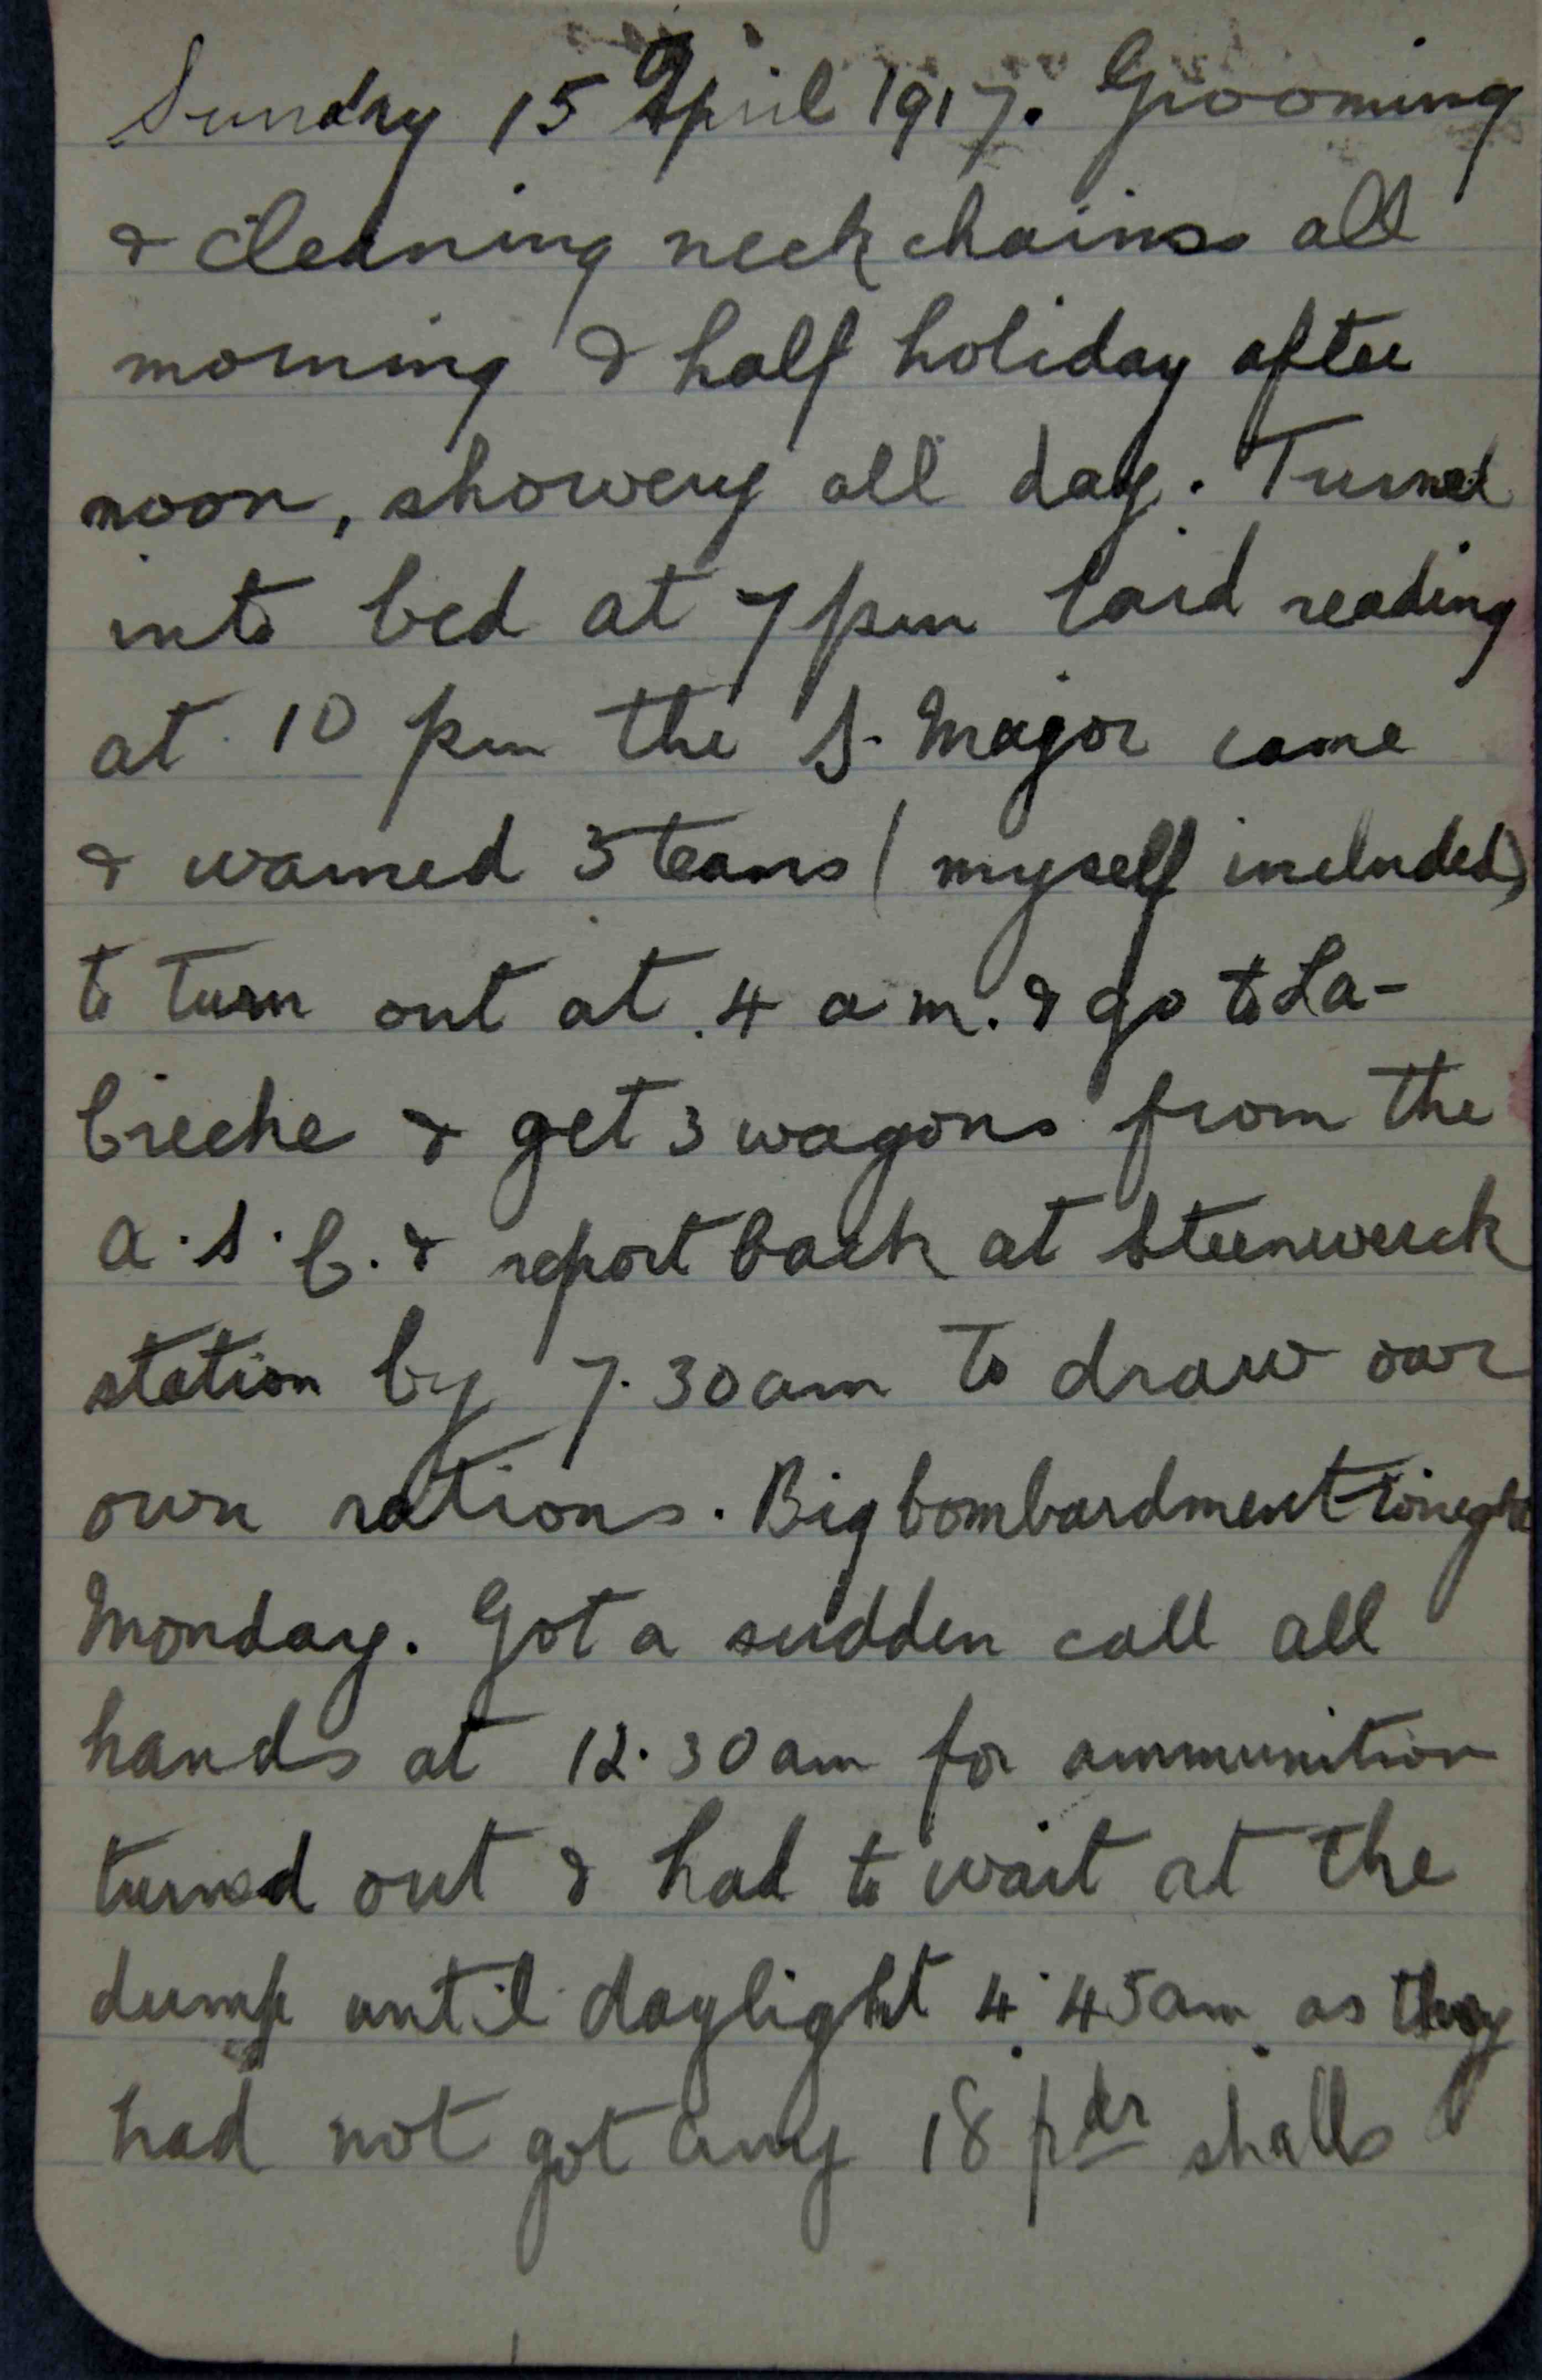 Sunday 15 April 1917. Grooming
& cleaning neck chains all
morning & half holiday after
noon, showery all day. Turned
into bed at 7 pm laid reading
at 10 pm the S. Major came
& warned 3 teams (myself included)
to turn out at 4 am. & go to La-
creche & get 3 wagons from the
A.S.C. & report back at Steenwerck
station by 7.30 am to draw our
own rations. Big bombardment tonight
Monday. Got a sudden call all
hands at 12.30 am for ammunition
turned out & had to wait at the
dump until daylight 4.45 am as they
had not got any 18 pdr shells